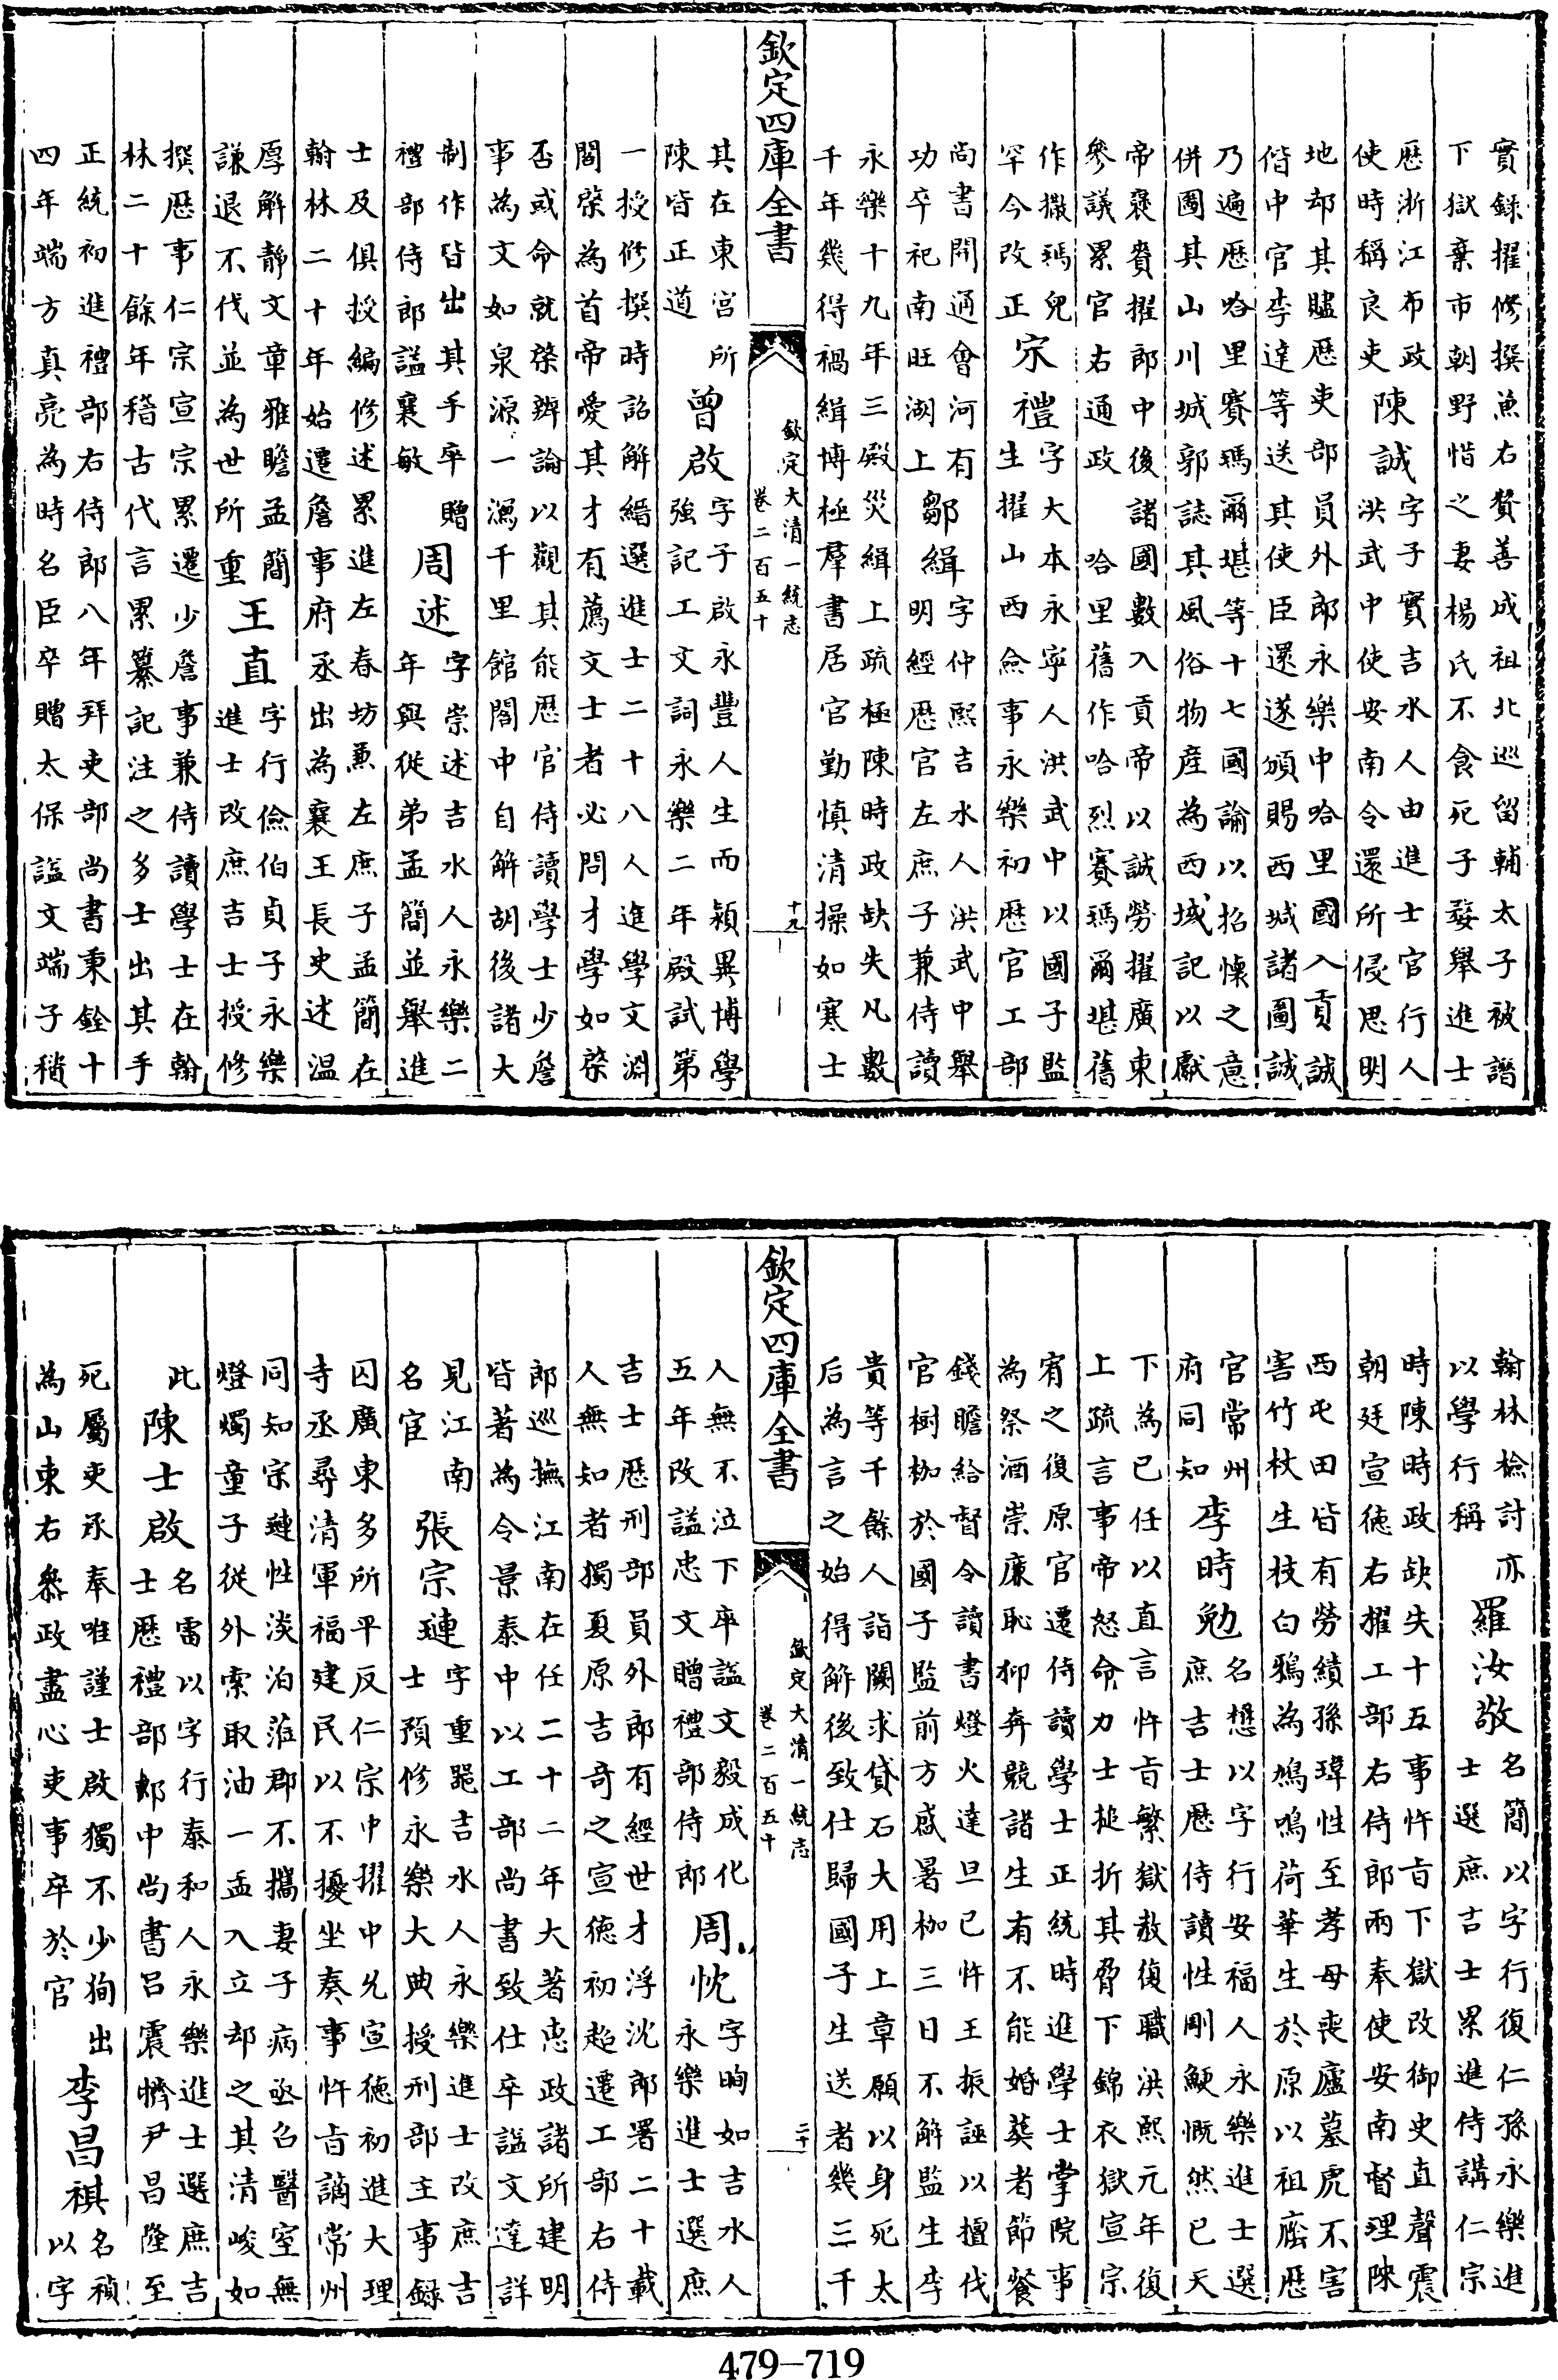 實錄擢修撰漁右贊善成祖北巡留輔太子被譖
下獄棄市朝野惜之妻楊氏不食死子婺舉進士
歷浙江布政
使時稱良吏
陳誠
字子實吉水人由進士官行人
洪武中使安南令還所侵思明
地却其贐歷吏部員外郎永樂中哈里國入貢誠
偕中官李達等送其使臣還遂頒賜西域諸國誠
乃遍歷哈里賽瑪爾堪等十七國諭以招懷之意
併圖其山川城郭誌其風俗物產為西域記以獻
帝褒賚擢郎中後諸國數入貢帝以誠勞擢廣東
參議累官右通政 哈里舊作哈烈賽瑪爾堪舊
作撒瑪兒
罕今改正
宋禮
字大本永寧人洪武中以國子監
生擢山西僉事永樂初歷官工部
尚書開通會河有
功卒祀南旺湖上
鄒緝
字仲熙吉水人洪武中舉
明經歷官左庶子兼侍讀
永樂十九年三殿災緝上疏極陳時政缺失凡數
千年幾得禍緝博極羣書居官勤慎清操如寒士
欽定四庫全書
欽定大清一統志
卷二百五十
十九
其在東宮所
陳皆正道
曾啟
字子啟永豐人生而穎異博學
強記工文詞永樂二年殿試第
一授修撰時詔解縉選進士二十八人進學文淵
閣棨為首帝愛其才有薦文士者必問才學如棨
否或命就棨辨論以觀其能歷官侍讀學士少詹
事為文如泉源一瀉千里館閣中自解胡後諸大
制作皆出其手卒贈
禮部侍郎謚襄敏
周述
字崇述吉水人永樂二
年與從弟孟簡並舉進
士及俱授編修述累進左春坊兼左庶子孟簡在
翰林二十年始遷詹事府丞出為襄王長史述温
厚解靜文章雅贍孟簡
謙退不伐並為世所重
王直
字行儉伯貞子永樂
進士改庶吉士授修
撰歷事仁宗宣宗累遷少詹事兼侍讀學士在翰
林二十餘年稽古代言累纂記注之多士出其手
正統初進禮部右侍郎八年拜吏部尚書秉銓十
四年端方真亮為時名臣卒贈太保謚文端子稍
翰林檢討亦
以學行稱
羅汝敬
名簡以字行復仁孫永樂進
士選庶吉士累進侍講仁宗
時陳時政缺失十五事忤旨下獄改御史直聲震
朝廷宣德右擢工部右侍郎兩奉使安南督理陝
西屯田皆有勞績孫瑋性至孝母喪廬墓虎不害
害竹杖生枝白鴉為鳩鳴荷華生於原以祖廕歷
官常州
府同知
李時勉
名懋以字行安福人永樂進士選
庶吉士歷侍讀性剛鯁慨然已天
下為已任以直言忤旨繫獄赦復職洪熙元年復
上疏言事帝怒命力士撾折其脅下錦衣獄宣宗
宥之復原官遷侍讀學士正統時進學士掌院事
為祭酒崇廉恥抑奔競諸生有不能婚葬者節餐
錢贍給督令讀書燈火達旦已忤王振誣以擅伐
官樹枷於國子監前方盛暑枷三日不解監生李
貴等千餘人詣闕求貸石大用上章願以身死太
后為言之始得解後致仕歸國子生送者幾三千
欽定四庫全書
欽定大清一統志
卷二百五十
二十
人無不泣下卒謚文毅成化
五年改謚忠文贈禮部侍郎
周忱
字恂如吉水人
永樂進士選庶
吉士歷刑部員外郎有經世才浮沈郎署二十載
人無知者獨夏原吉奇之宣德初超遷工部右侍
郎巡撫江南在任二十二年大著忠政諸所建明
皆著為令景泰中以工部尚書致仕卒謚文達詳
見江南
名宦
張宗璉
字重器吉水人永樂進士改庶吉
士預修永樂大典授刑部主事錄
囚廣東多所平反仁宗中擢中允宣德初進大理
寺丞尋清軍福建民以不擾坐奏事忤旨謫常州
同知宗璉性淡泊蒞郡不攜妻子病亟召醫室無
燈燭童子從外索取油一盂入立却之其清峻如
此
陳士啟
名雷以字行泰和人永樂進士選庶吉
士歷禮部郎中尚書呂震懠尹昌隆至
死屬吏承奉唯謹士啟獨不少狥出
為山東右參政盡心吏事卒於官
李昌祺
名禎
以字
479-719